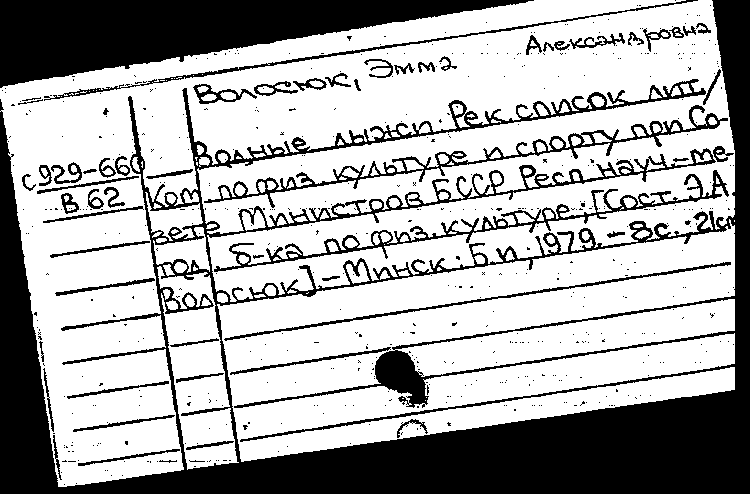 Волосюк, Эмма Александровна
Водные лыжи: Рек. список лит. /
с 929-660
В 62
Ком. по физ. культуре и спорту при Со-
вете Министров БССР, Респ. науч.-ме-
тод. б-ка по физ. культуре; [Сост. Э.А.
Волосюк]. - Минск: Б.и., 1979. - 8с.; 21см